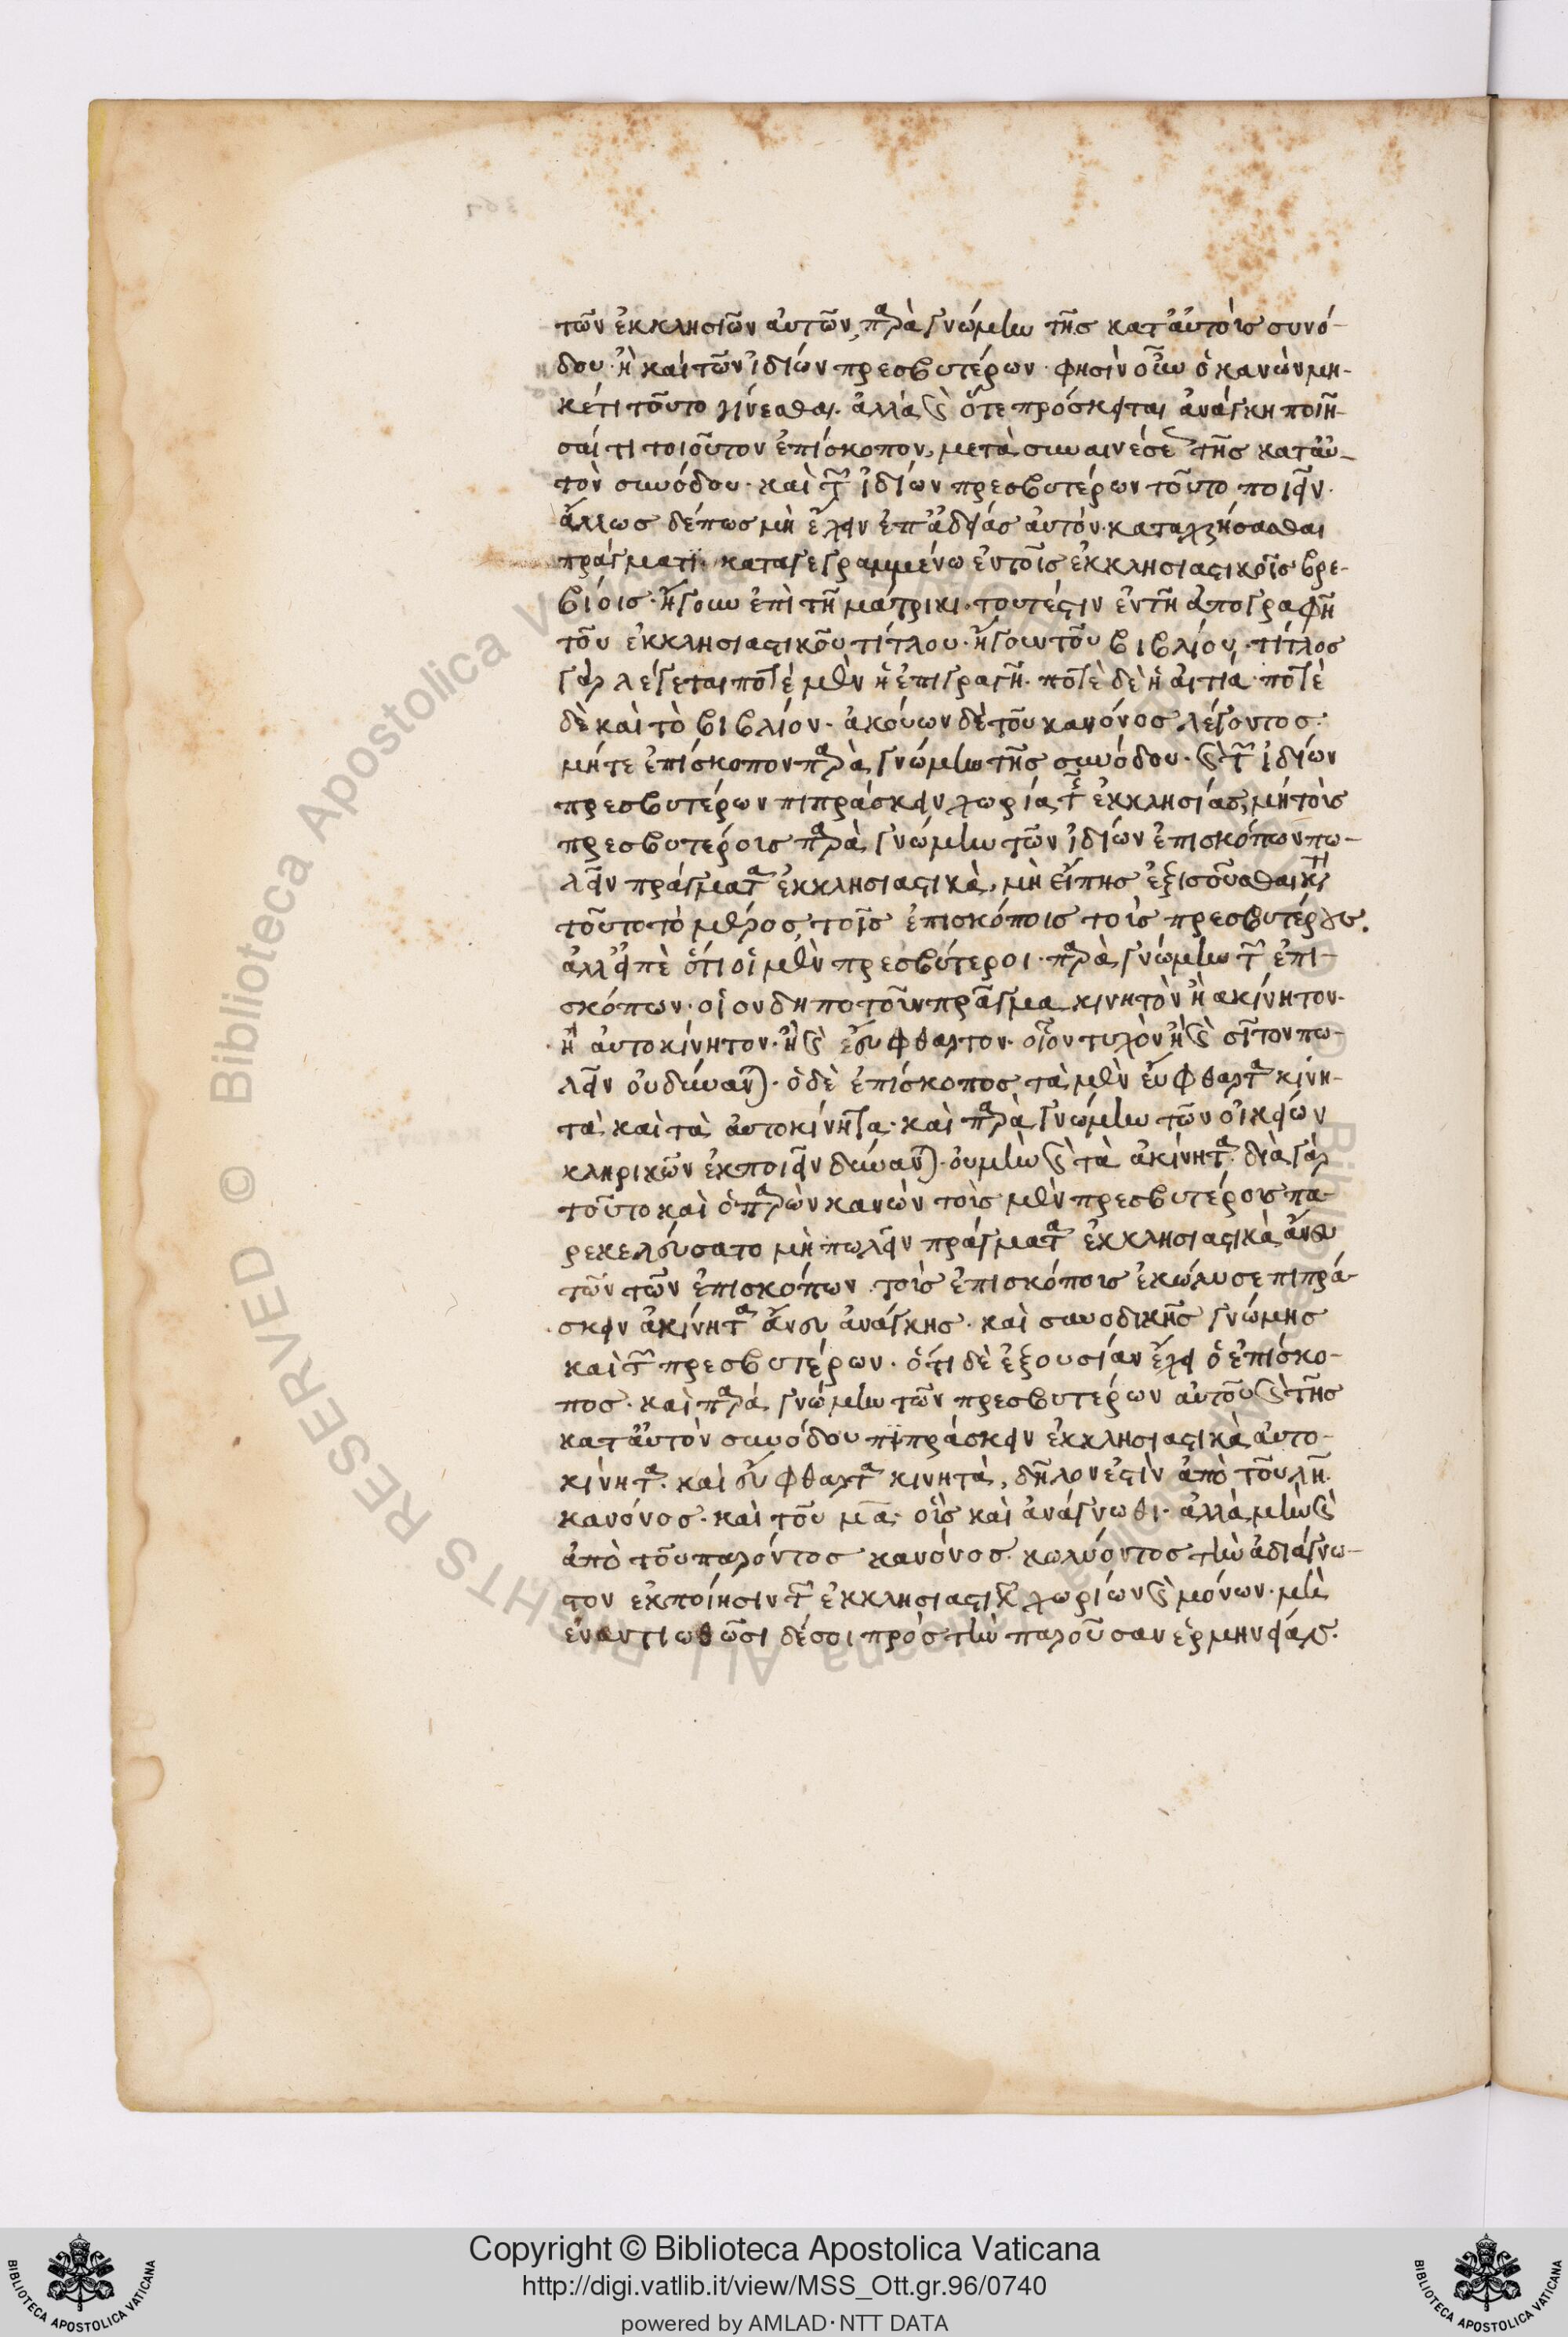 τῶν ἐκκλησιῶν αὐτῶν, παρὰ γνώμην τῆς κατ' αὐτοὺς συνό-
δου· ἢ καὶ τῶν ἰδίων πρεσβυτέρων· φησὶν οὖν ὁ κανὼν μη-
κέτι τοῦτο γίνεσθαι· ἀλλὰ καὶ ὅτε πρόσκειται ἀνάγκη ποιῆ-
σαί τι τοιοῦτον ἐπίσκοπον, μετὰ συναινέσεως τῆς κατ' αὐ-
τὸν συνόδου· καὶ τῶν ἰδίων πρεσβυτέρων τοῦτο ποιεῖν·
ἄλλως δέπως μὴ ἔχειν ἐπ' ἀδείας αὐτὸν καταχρήσασθαι
πράγματι· καταγεγραμμένω ἐν τοῖς ἐκκλησιαστικοῖς βρε-
βίοις· ἤγουν ἐπὶ τῆ μάτρικι· τουτέστιν ἐν τῆ ἀπογραφῆ
τοῦ ἐκκλησιαστικοῦ τίτλου· ἤγουν τοῦ βιβλίου· τίτλος
γὰρ λέγεται ποτὲ μὲν ἡ ἐπιγραφή· ποτὲ δὲ ἡ αἰτία· ποτὲ
δὲ καὶ τὸ βιβλίον· ἀκούων δὲ τοῦ κανόνος λέγοντος·
μήτε ἐπίσκοπον παρὰ γνώμην τῆς συνόδου· καὶ τῶν ἰδίων
πρεσβυτέρων πιπράσκειν χωρία τῆς ἐκκλησίας, μὴ τοὺς
πρεσβυτέροις παρὰ γνώμην τῶν ἰδίων ἐπισκόπων πω-
λεῖν πράγματα ἐκκλησιαστικὰ, μὴ εἴπης ἐξισοῦσθαι κατὰ
τοῦτο τὸ μέρος, τοῖς ἐπισκόποις τοὺς πρεσβυτέρους.
ἀλλ' εἰπὲ ὅτι οἱ μὲν πρεσβύτεροι· παρὰ γνώμην τῶν ἐπι-
σκόπων· οἱονδηποτοῦν πρᾶγμα κινητὸν ἢ ἀκίνητον·
ἢ αὐτοκίνητον· ἢ καὶ εὔφθαρτον· οἷον τυρὸν ἢ καὶ σῖτον πω-
λεῖν οὐ δύνανται· ὁ δὲ ἐπίσκοπος, τὰ μὲν εὔφθαρτα κινη-
τὰ καὶ τὰ αὐτοκίνητα· καὶ παρὰ γνώμην τῶν οἰκείων
κληρικῶν ἐκποιεῖν δύναται· οὐ μὴν καὶ τὰ ἀκίνητα· διὰ γὰρ
τοῦτο καὶ ὁ παρὼν κανὼν τοὺς μὲν πρεσβυτέροις πα-
ρεκελεύσατο μὴ πωλεῖν πράγματα ἐκκλησιαστικὰ ἄνευ
τῶν τῶν ἐπισκόπων· τοὺς ἐπισκόποις ἐκώλυσε πιπρά-
σκειν ἀκίνητα ἄνευ ἀνάγκης· καὶ συνοδικῆς γνώμης
καὶ τῶν πρεσβυτέρων· ὅτι δὲ ἐξουσίαν ἔχει ὁ ἐπίσκο-
πος· καὶ παρὰ γνώμην τῶν πρεσβυτέρων αὐτοῦ καὶ τῆς
κατ' αὐτὸν συνόδου πιπράσκειν ἐκκλησιαστικὰ αὐτο-
κίνητα· καὶ εὔφθαρτα κινητὰ, δῆλον ἐστὶν ἀπὸ τοῦ λη
κανόνος· καὶ τοῦ μα· οὓς καὶ ἀνάγνωθι· ἀλλὰ μὴν καὶ
ἀπὸ τοῦ παρόντος κανόνος· κωλύοντος τὴν ἀδιάγνω-
τον ἐκποίησιν τῶν ἐκκλησιαστικῶν χωρίων καὶ μόνων· μὴ
ἐναντιωθῶσι δέ σοι πρὸς τὴν παροῦσαν ἑρμηνείαν·
Copyright © Biblioteca Apostolica Vaticana
http://digi.vatlib.it/view/MSS_Ott.gr.96/0740
powered by AMLAD·NTT DATA